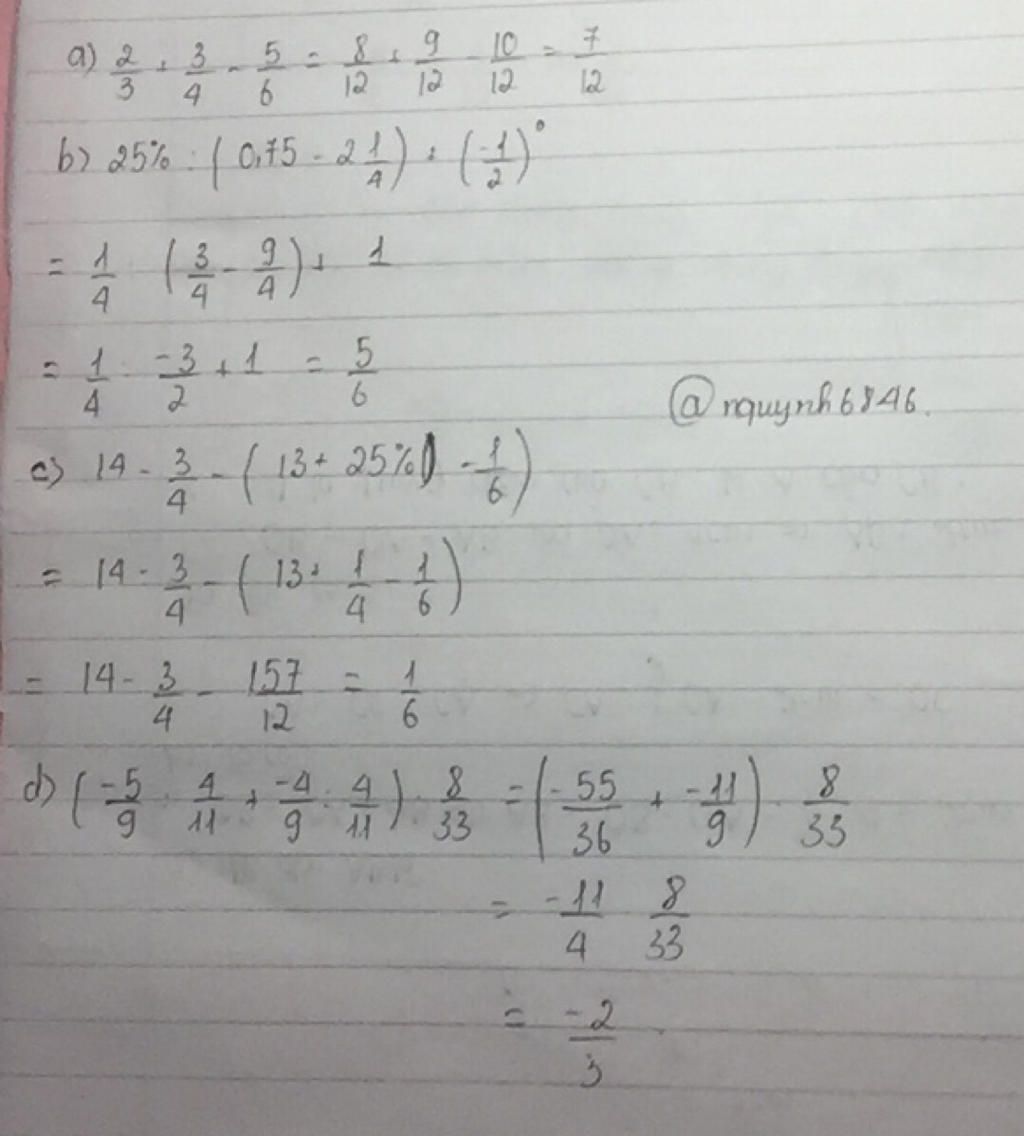 a) 2/3 + 3/4 - 5/6 = 8/12 + 9/12 - 10/12 = 7/12
b) 25% : ( 0,75 - 2 1/4 ) + ( -1/2 )⁰
= 1/4 : ( 3/4 - 9/4 ) + 1
= 1/4 : -3/2 + 1 = 5/6
@nquynh6846.
c) 14 - 3/4 - ( 13 + 25%) - 1/6 )
= 14 - 3/4 - ( 13 + 1/4 - 1/6 )
= 14 - 3/4 - 157/12 = 1/6
d) ( -5/9 : 4/11 + -4/9 : 4/11 ) . 8/33 = ( -55/36 + -11/9 ) . 8/33
= -11/4 8/33
= -2/3